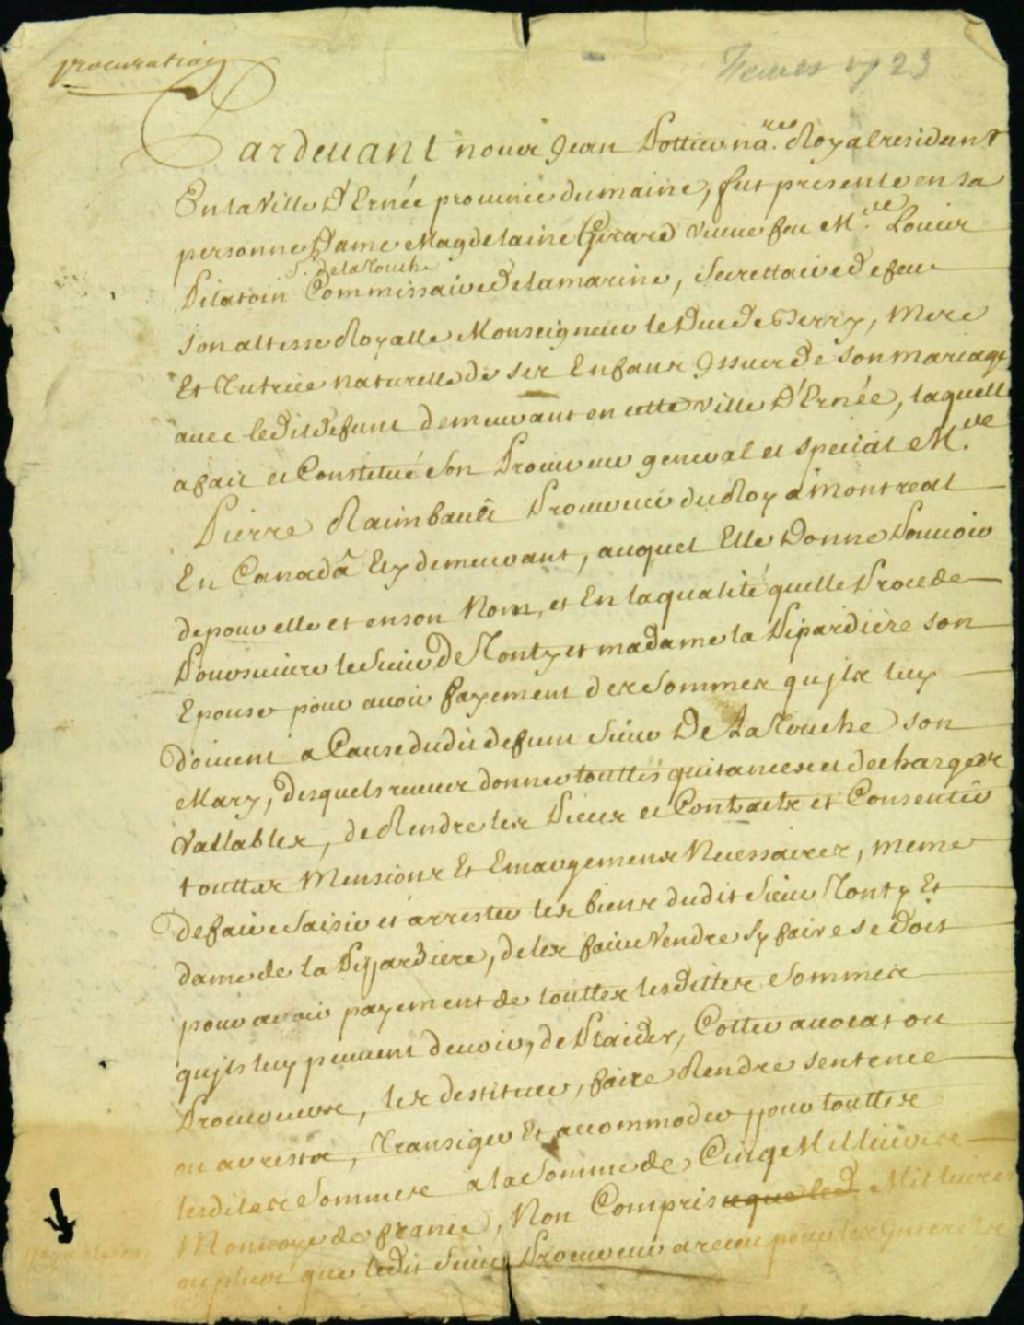 procuration
1723
Pardevant nous Jean Pottier no.re Royal residant
En la Ville D'Ernée province du maine, fut presente en sa
personne Dame Magdelaine Girard veuve feu M.re Louis
S.r De la Touche
Commissaire De la marine, Secrettaire de feu
Son altesse Royalle Monseigneur le Duc de Berry, Mere
Et Tutrice naturelle de ses Enfans Issus de son mariage
avec ledit defunt demeurant en cette ville D'Ernée, laquelle
a fait et Constitué son Procureur general et special M.re
Pierre Raimbault Procureur du Roy a Montreal
En Canadâ Et y demeurant, auquel Elle Donne Pouvoir
de pour elle et en son Nom, et En la qualité quelle Procede
Poursuivre le Sieur De Monty et madame la Pipardière son
Epouse pour avoir payement des Sommes qu'jls luy
doivent a Cause dudit defunt Sieur De La Touche son
Mary, desquels recevoir donner touttes quitances et descharges
Vallables, de Rendre les Pieces et Contracts et Consentir
touttes Mensions Et Emargemens Necessaires, meme
de faire Saisir et arrester les biens dudit Sieur Monty Et
dame de la Pipardiere, de les faire Vendre sy faire se doit
pour avoir payement de touttes lesdittes Sommes
qu'jls luy peuvent devoir, de Plaider, Cotter avocat ou
Procureurs, les destituer, faire Rendre sentence
ou arrests, Transiger Et accommoder pour touttes
lesdites Sommes a la Somme de Cinq Mil livres
Monnoye de france, Non Compris que led Mil livres
ou plus que ledit Sieur Procureur a receu pour les Interests